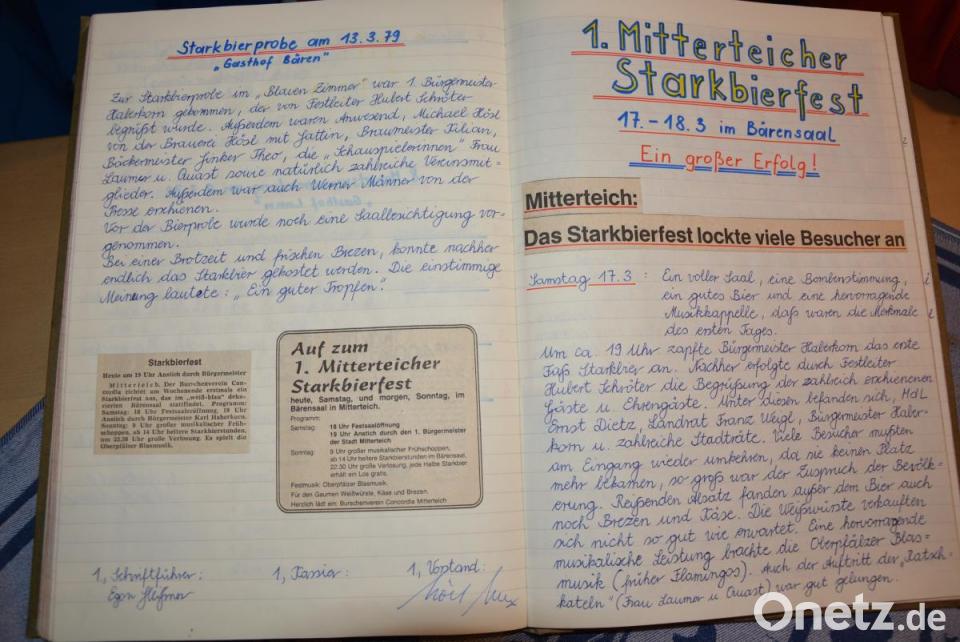 Starkbierprobe am 13.3.79
"Gasthof Bären"
Zur Starkbierprobe im „Blauen Zimmer" war 1. Bürgermeister
Haberkorn gekommen, der von Festleiter Hubert Schröter
begrüßt wurde. Außerdem waren Anwesend, Michael Hösl
von der Brauerei Hösl mit Gattin, Braumeister Kilian,
Bäckermeister Finker Theo, die „Schauspielerinnen" Frau
Laumer u. Quast sowie natürlich zahlreiche Vereinsmit-
glieder. Außerdem war auch Werner Männer von der
Presse erschienen.
Vor der Bierprobe wurde noch eine Saalbesichtigung vor-
genommen.
Bei einer Brotzeit und frischen Brezen, konnte nachher
endlich das Starkbier gekostet werden. Die einstimmige
Meinung lautete: „Ein guter Tropfen".
Starkbierfest
Heute um 19 Uhr Anstich durch Bürgermeister
Mitterteich. Der Burschenverein Con-
cordia richtet am Wochenende erstmals ein
Starkbierfest aus, das im „weiß-blau" deko-
rierten Bärensaal stattfindet. Programm:
Samstag: 18 Uhr Festsaalöffnung, 19 Uhr
Anstich durch Bürgermeister Karl Haberkorn.
Sonntag: 9 Uhr großer musikalischer Früh-
schoppen, ab 14 Uhr heitere Starkbierstunden,
um 22.30 Uhr große Verlosung. Es spielt die
Oberpfälzer Blasmusik.
Auf zum
1. Mitterteicher
Starkbierfest
heute, Samstag, und morgen, Sonntag, im
Bärensaal in Mitterteich.
Programm:
Samstag: 18 Uhr Festsaalöffnung
19 Uhr Anstich durch den 1. Bürgermeister
der Stadt Mitterteich
Sonntag: 9 Uhr großer musikalischer Frühschoppen,
ab 14 Uhr heitere Starkbierstunden im Bärensaal,
22.30 Uhr große Verlosung, jede Halbe Starkbier
erhält ein Los gratis.
Festmusik: Oberpfälzer Blasmusik.
Für den Gaumen Weißwürste, Käse und Brezen.
Herzlich lädt ein: Burschenverein Concordia Mitterteich
1, Schriftführer: 1, Kassier: 1, Vorstand:
Egon
1. Mitterteicher
Starkbierfest
17.-18.3 im Bärensaal
Ein großer Erfolg!
Mitterteich:
Das Starkbierfest lockte viele Besucher an
Samstag 17.3: Ein voller Saal, eine Bombenstimmung,
ein gutes Bier und eine hervorragende
Musikkappelle, daß waren die Merkmale
des ersten Tages.
Um ca. 19 Uhr zapfte Bürgermeister Haberkorn das erste
Faß Starkbier an. Nachher erfolgte durch Festleiter
Hubert Schröter die Begrüßung der zahlreich erschienenen
Gäste u. Ehrengäste. Unter diesen befanden sich, MdL
Ernst Dietz, Landrat Franz Weigl, Bürgermeister Haber-
korn u. zahlreiche Stadträte. Viele Besucher mußten
am Eingang wieder umkehren, da sie keinen Platz
mehr bekamen, so groß war der Zuspruch der Bevölk-
erung. Reißenden Absatz fanden außer dem Bier auch
noch Brezen und Käse. Die Weißwürste verkauften
sich nicht so gut wie erwartet. Eine hervorragende
musikalische Leistung brachte die Oberpfälzer Blas=
musik (früher Flamingos). Auch der Auftritt der „Ratsch-
kateln" (Frau Laumer u. Quast) war gut gelungen.
Onetz.de